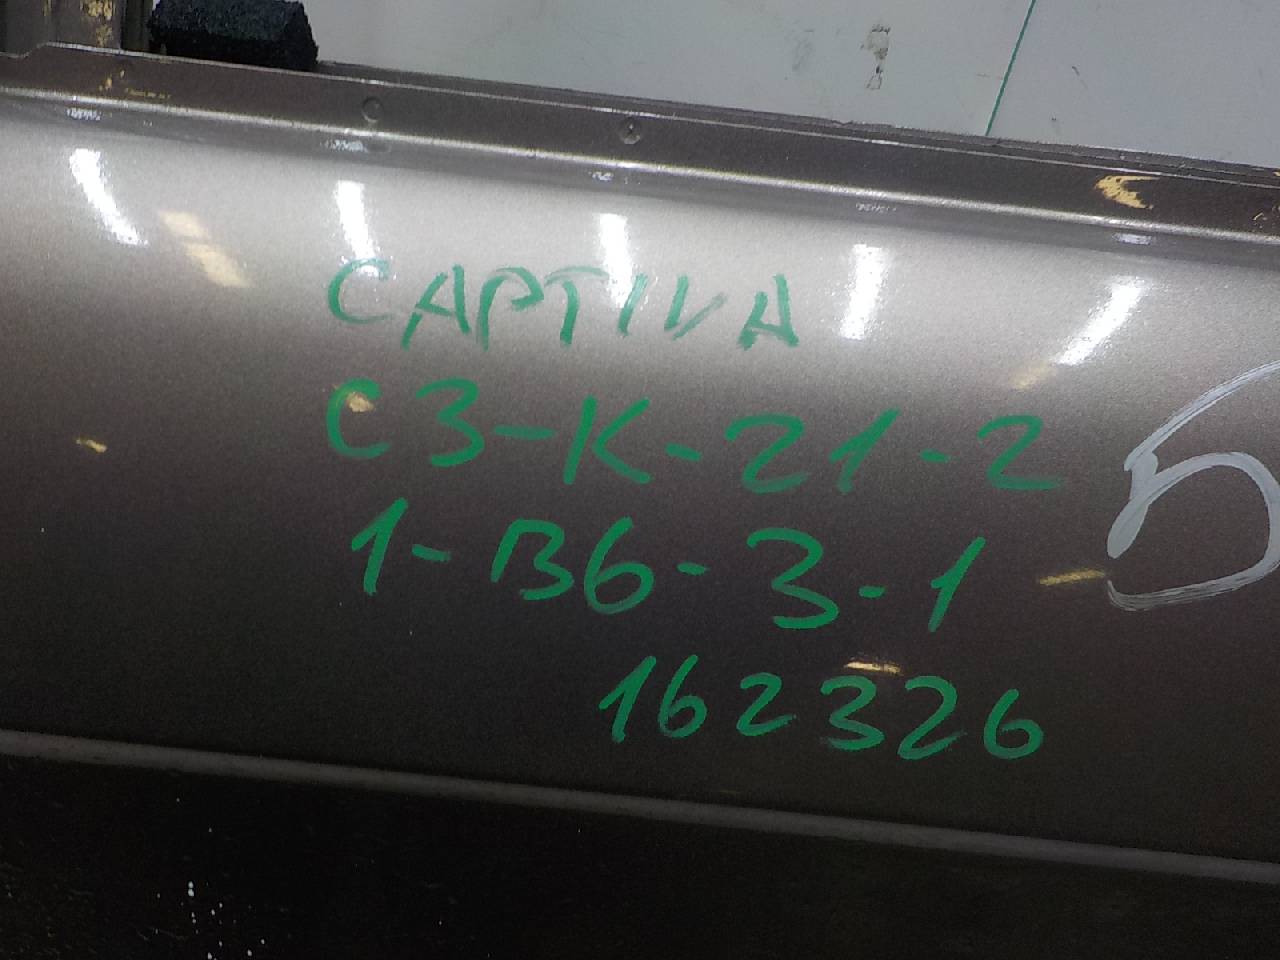 CAPTIVA
C3-K-21-2
1-B6-3-1
162326